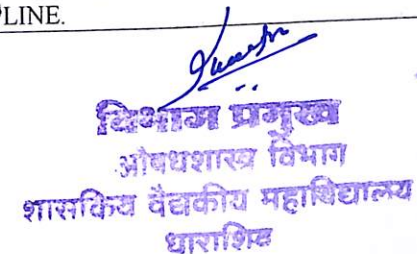 LINE.
विभाग प्रमुख
औषधशास्त्र विभाग
शासकिय वैद्यकीय महाविद्यालय
धाराशिव